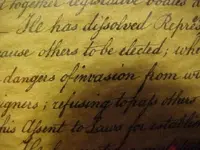 together legislative bodies a
— He has dissolved Repres
ause others to be elected; whe
dangers of invasion from wi
igners; refusing to pass others
his Assent to Laws for establis